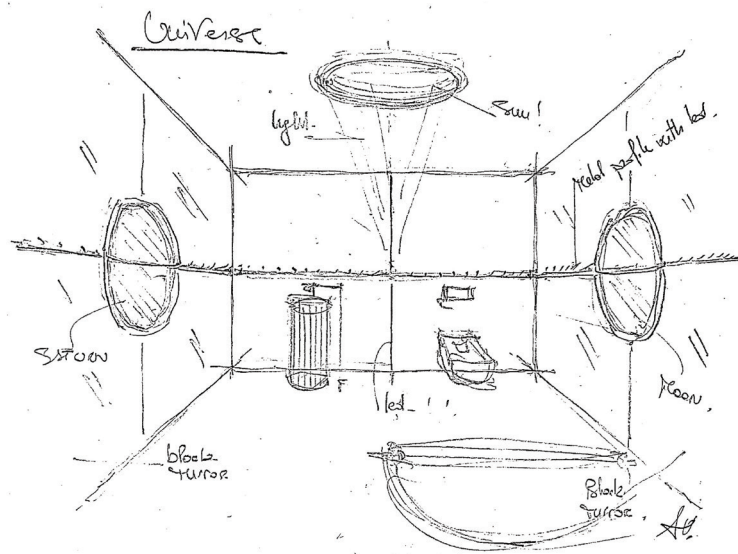 Universe
light.
Sun!
Metal profile with led.
SATURN
led_!!
Moon.
black
mirror
Black
mirror.